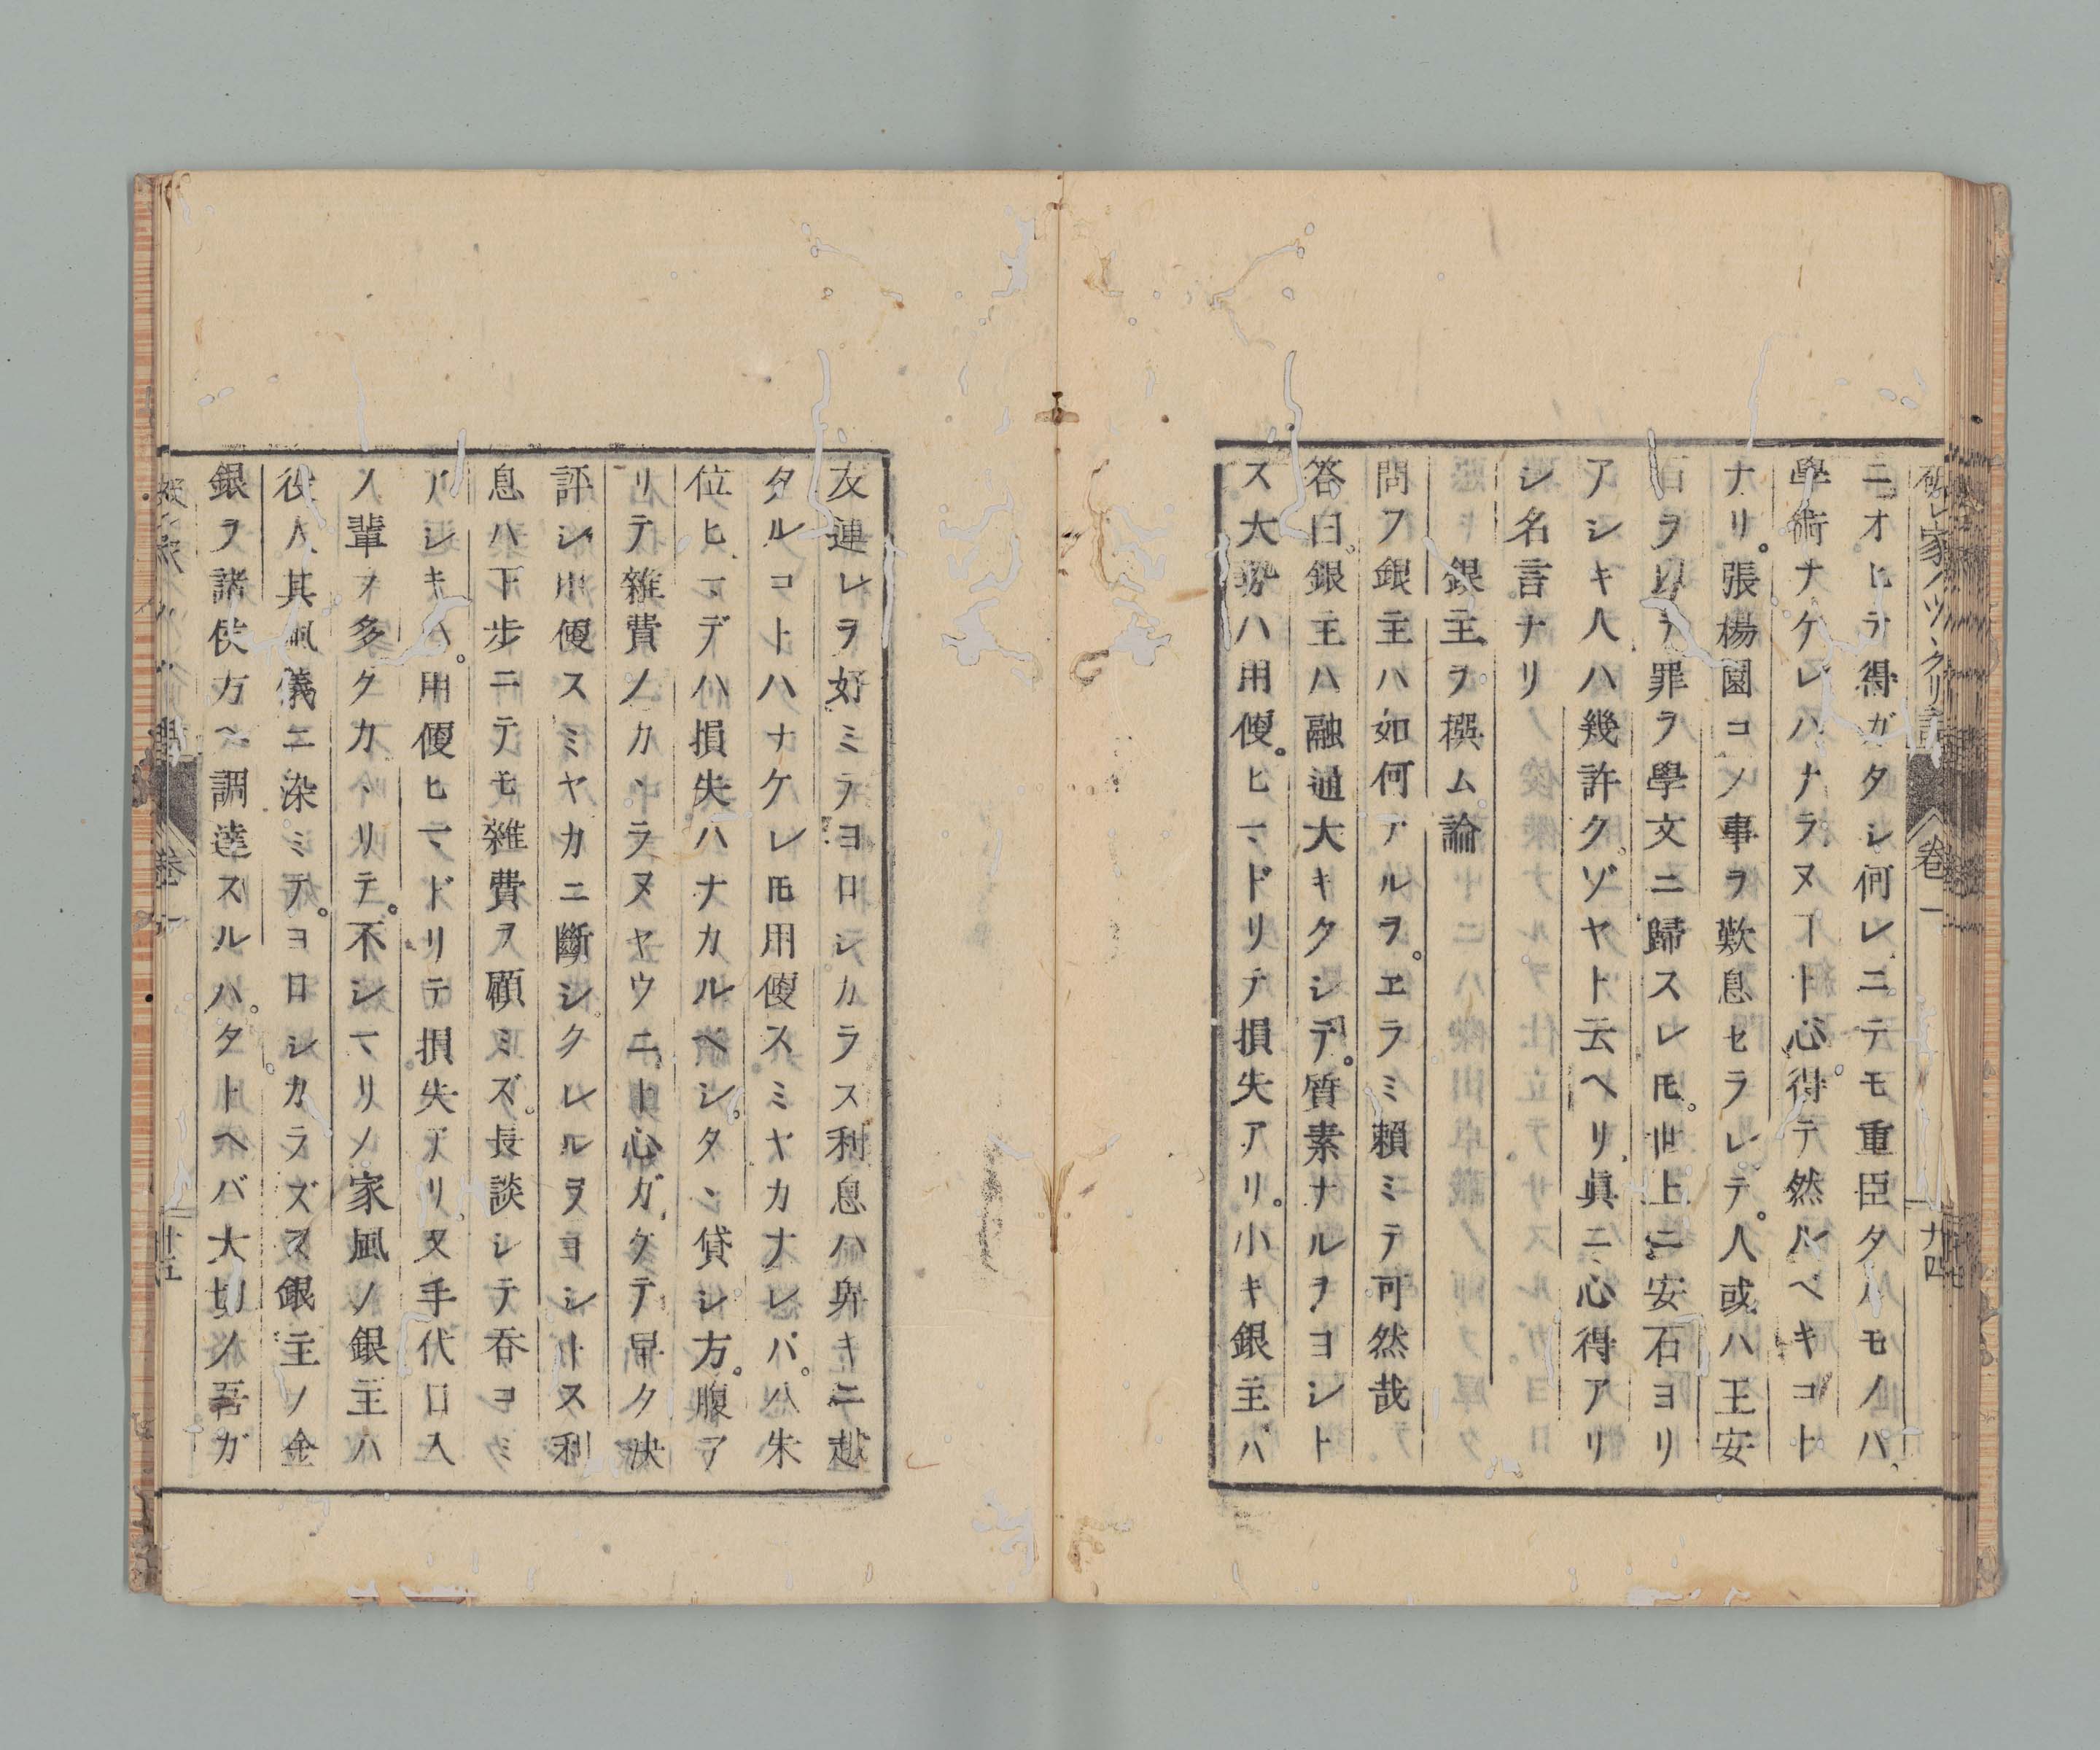 ニオヒテ得ガタシ何レニテモ重臣タルモノハ、
學術ナケレハナラヌヿト心得テ然ルベキコト
ナリ。張楊園コノ事ヲ歎息セラレテ。人或ハ王安
石ヲ以テ罪ヲ學文ニ歸スレ𪜈。世上ニ安石ヨリ
アシキ人ハ幾許クゾヤト云ヘリ眞ニ心得アリ
シ名言ナリ
銀主ヲ撰ム論
問フ銀主ハ如何アルヲ。ヱラミ頼ミテ可然哉
答曰。銀主ハ融通大キクシテ。質素ナルヲヨシト
ス大勢ハ用便。ヒマドリテ損失アリ。小キ銀主ハ
卷一
廿四
友連レヲ好ミテヨロシカラス利息ハ舁キニ越
タルコトハナケレ𪜈用便スミヤカナレバ。八朱
位ヒマデハ損失ハナカルベシ。タヾ貸シ方。腹ア
リテ雑費ノカヽラヌヤウニト心ガケテ早ク決
評シ用便スミヤカニ斷シクレルヲヨシトス利
息ハ下歩ニテモ雑費ヲ顧ミズ。長談シテ呑ヨミ
ハシキハ。用便ヒマドリテ損失アリ。又手代口入
ノ輩ヲ多クカヽリテ。不シマリノ家風ノ銀主ハ
役人其風儀ニ染ミテ。ヨロシカラズ又銀主ノ金
銀ヲ諸侯方ヘ調達スルハ。タトヘバ大切ノ吾ガ
卷一
廿五